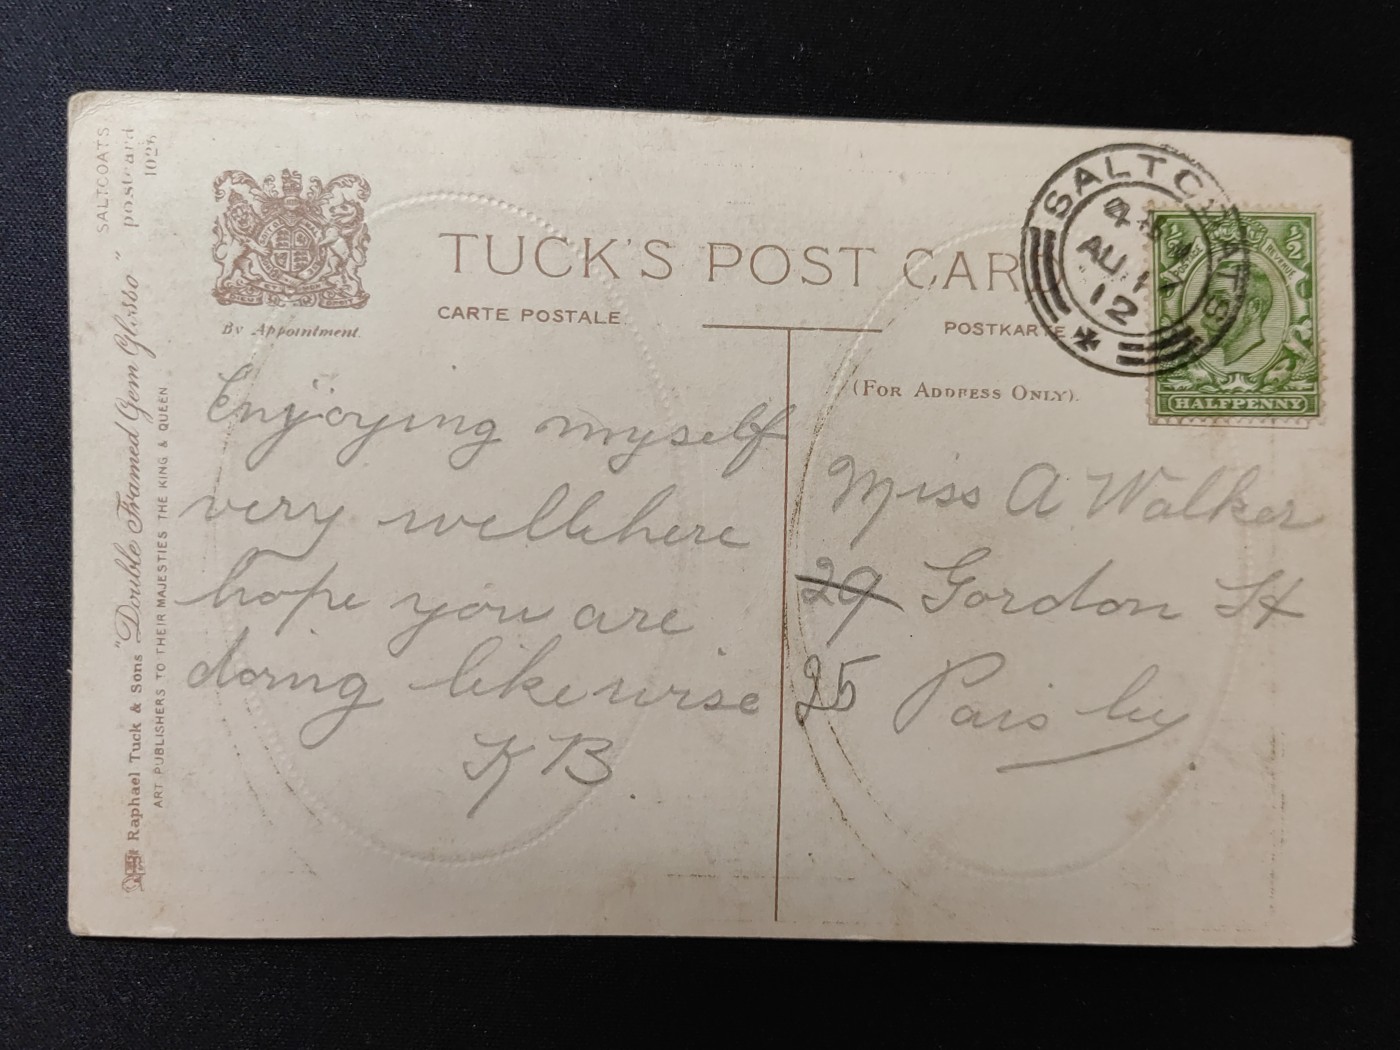 SALTCOATS
postcard 102
"Double Framed Gem Glosso"
Raphael Tuck & Sons
ART PUBLISHERS TO THEIR MAJESTIES THE KING & QUEEN
By Appointment.
TUCK'S POST CAR
CARTE POSTALE
POSTKARTE
(FOR ADDRESS ONLY).
SALTCOATS
AU
12
POSTAGE REVENUE
½ ½
HALFPENNY
Enjoying myself
very well here
hope you are
doing likewise
KB
Miss A Walker
29 Gordon St
25 Paisley